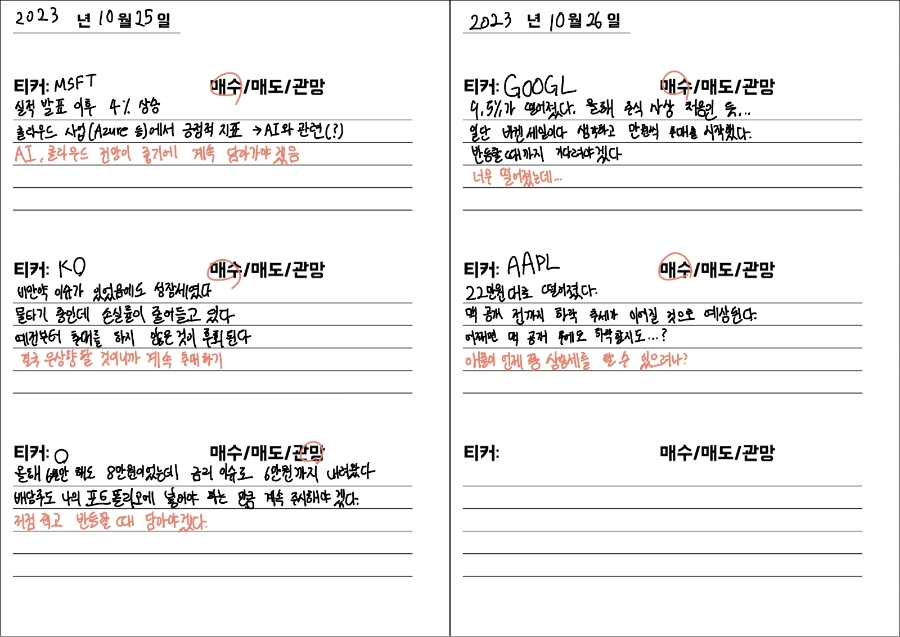 2023 년 10월 25일
티커: MSFT 매수/매도/관망
실적 발표 이후 4% 상승
클라우드 사업(Azure 등)에서 긍정적 지표 → AI와 관련(?)
AI, 클라우드 전망이 좋기에 계속 담아가야겠음
티커: KO 매수/매도/관망
비만약 이슈가 있었음에도 성장세였다
물타기 중인데 손실률이 줄어들고 있다
예전부터 추매를 하지 않은 것이 후회된다
결국 우상향할 것이니까 계속 추매하기
티커: O 매수/매도/관망
올해 초만 해도 8만원이었는데 금리 이슈로 6만원까지 내려왔다
배당주도 나의 포트폴리오에 넣어야 하는 만큼 계속 주시해야겠다.
저점 찍고 반등할 때 담아야겠다.
2023 년 10월 26일
티커: GOOGL 매수/매도/관망
9.5%가 떨어졌다. 올해 주식 사상 처음인 듯...
일단 바겐세일이다 생각하고 만원씩 추매를 시작했다.
반등할 때까지 기다려야겠다
너무 떨어졌는데...
티커: AAPL 매수/매도/관망
22만원대로 떨어졌다.
맥 공개 전까지 하락 추세가 이어질 것으로 예상된다.
어쩌면 맥 공개 후에도 하락할지도...?
애플이 언제쯤 상승세를 탈 수 있으려나?
티커: 매수/매도/관망